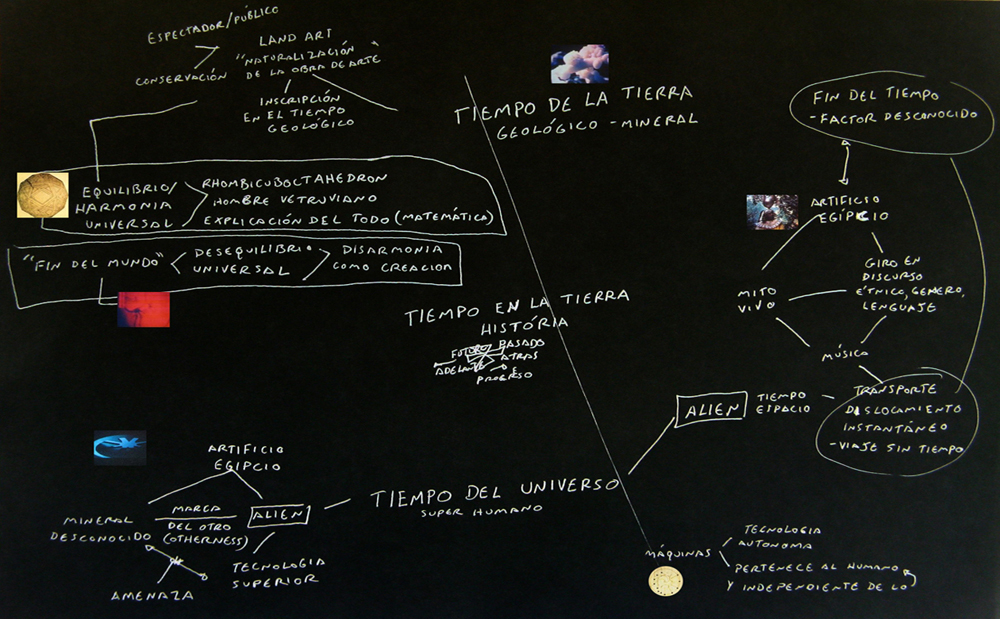 ESPECTADOR/PÚBLICO
LAND ART
"NATURALIZACIÓN
DE LA OBRA DE ARTE"
CONSERVACIÓN
INSCRIPCIÓN
EN EL TIEMPO
GEOLÓGICO
TIEMPO DE LA TIERRA
GEOLÓGICO - MINERAL
FIN DEL TIEMPO
- FACTOR DESCONOCIDO
EQUILIBRIO/
HARMONIA
UNIVERSAL
RHOMBICUBOCTAHEDRON
HOMBRE VETRUVIANO
EXPLICACIÓN DEL TODO (MATEMÁTICA)
"FIN DEL MUNDO"
DESEQUILIBRIO
UNIVERSAL
DISARMONIA
COMO CREACION
ARTIFICIO
EGIPCIO
MITO
VIVO
GIRO EN
DISCURSO
ÉTNICO, GENERO,
LENGUAJE
MÚSICA
TIEMPO EN LA TIERRA
HISTÓRIA
FUTURO
PASADO
ADELANTE
ATRAS
PROGRESO
ALIEN
TIEMPO
ESPACIO
TRANSPORTE
DISLOCAMIENTO
INSTANTÁNEO
- VIAJE SIN TIEMPO
ARTIFICIO
EGIPCIO
MINERAL
DESCONOCIDO
MARCA
DEL OTRO
(OTHERNESS)
ALIEN
TECNOLOGIA
SUPERIOR
AMENAZA
TIEMPO DEL UNIVERSO
SUPER HUMANO
MÁQUINAS
TECNOLOGIA
AUTONOMA
PERTENECE AL HUMANO
Y INDEPENDIENTE DE LO